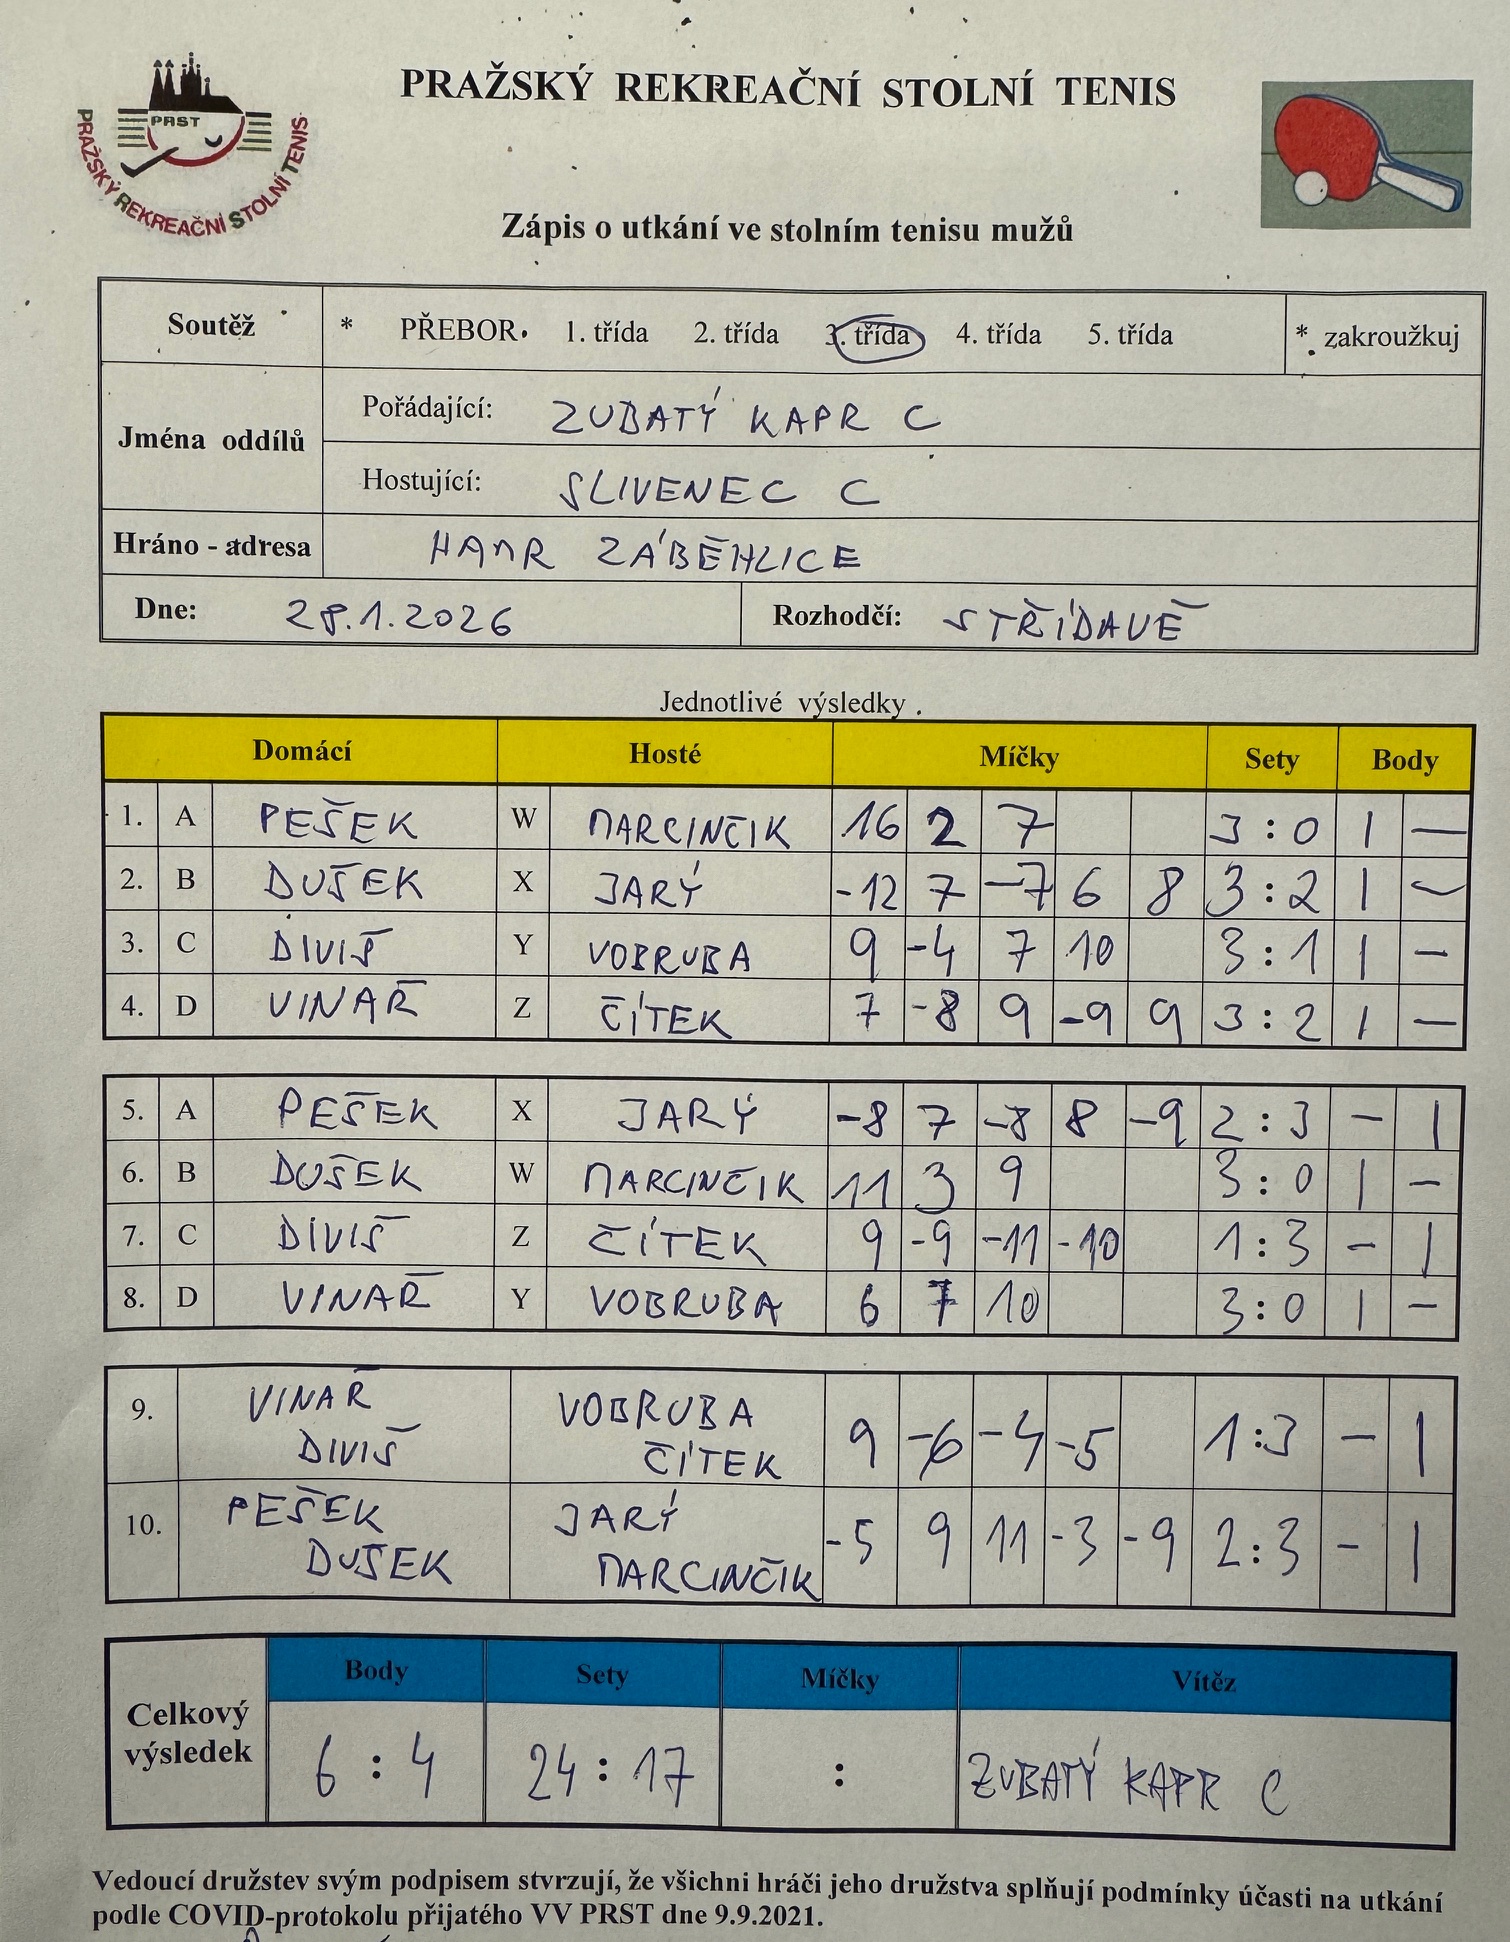 PRAŽSKÝ REKREAČNÍ STOLNÍ TENIS
PRST
PRAŽSKÝ REKREAČNÍ STOLNÍ TENIS
Zápis o utkání ve stolním tenisu mužů
Soutěž * PŘEBOR 1. třída 2. třída 3. třída 4. třída 5. třída * zakroužkuj
Jména oddílů
Pořádající: ZUBATÝ KAPR C
Hostující: SLIVENEC C
Hráno - adresa HAMR ZÁBĚHLICE
Dne: 28.1.2026 Rozhodčí: STŘÍDAVĚ
Jednotlivé výsledky
Domácí Hosté Míčky Sety Body
1. A PEŠEK W MARCINČIK 16 2 7 3 : 0 1 —
2. B DUŠEK X JARÝ -12 7 -7 6 8 3 : 2 1 —
3. C DIVIŠ Y VOBRUBA 9 -4 7 10 3 : 1 1 —
4. D VINAŘ Z ČÍTEK 7 -8 9 -9 9 3 : 2 1 —
5. A PEŠEK X JARÝ -8 7 -8 8 -9 2 : 3 — 1
6. B DUŠEK W MARCINČIK 11 3 9 3 : 0 1 —
7. C DIVIŠ Z ČÍTEK 9 -9 -11 -10 1 : 3 — 1
8. D VINAŘ Y VOBRUBA 6 7 10 3 : 0 1 —
9. VINAŘ DIVIŠ VOBRUBA ČÍTEK 9 -6 -4 -5 1 : 3 — 1
10. PEŠEK DUŠEK JARÝ MARCINČIK -5 9 11 -3 -9 2 : 3 — 1
Celkový výsledek
Body Sety Míčky Vítěz
6 : 4 24 : 17 : ZUBATÝ KAPR C
Vedoucí družstev svým podpisem stvrzují, že všichni hráči jeho družstva splňují podmínky účasti na utkání
podle COVID-protokolu přijatého VV PRST dne 9.9.2021.